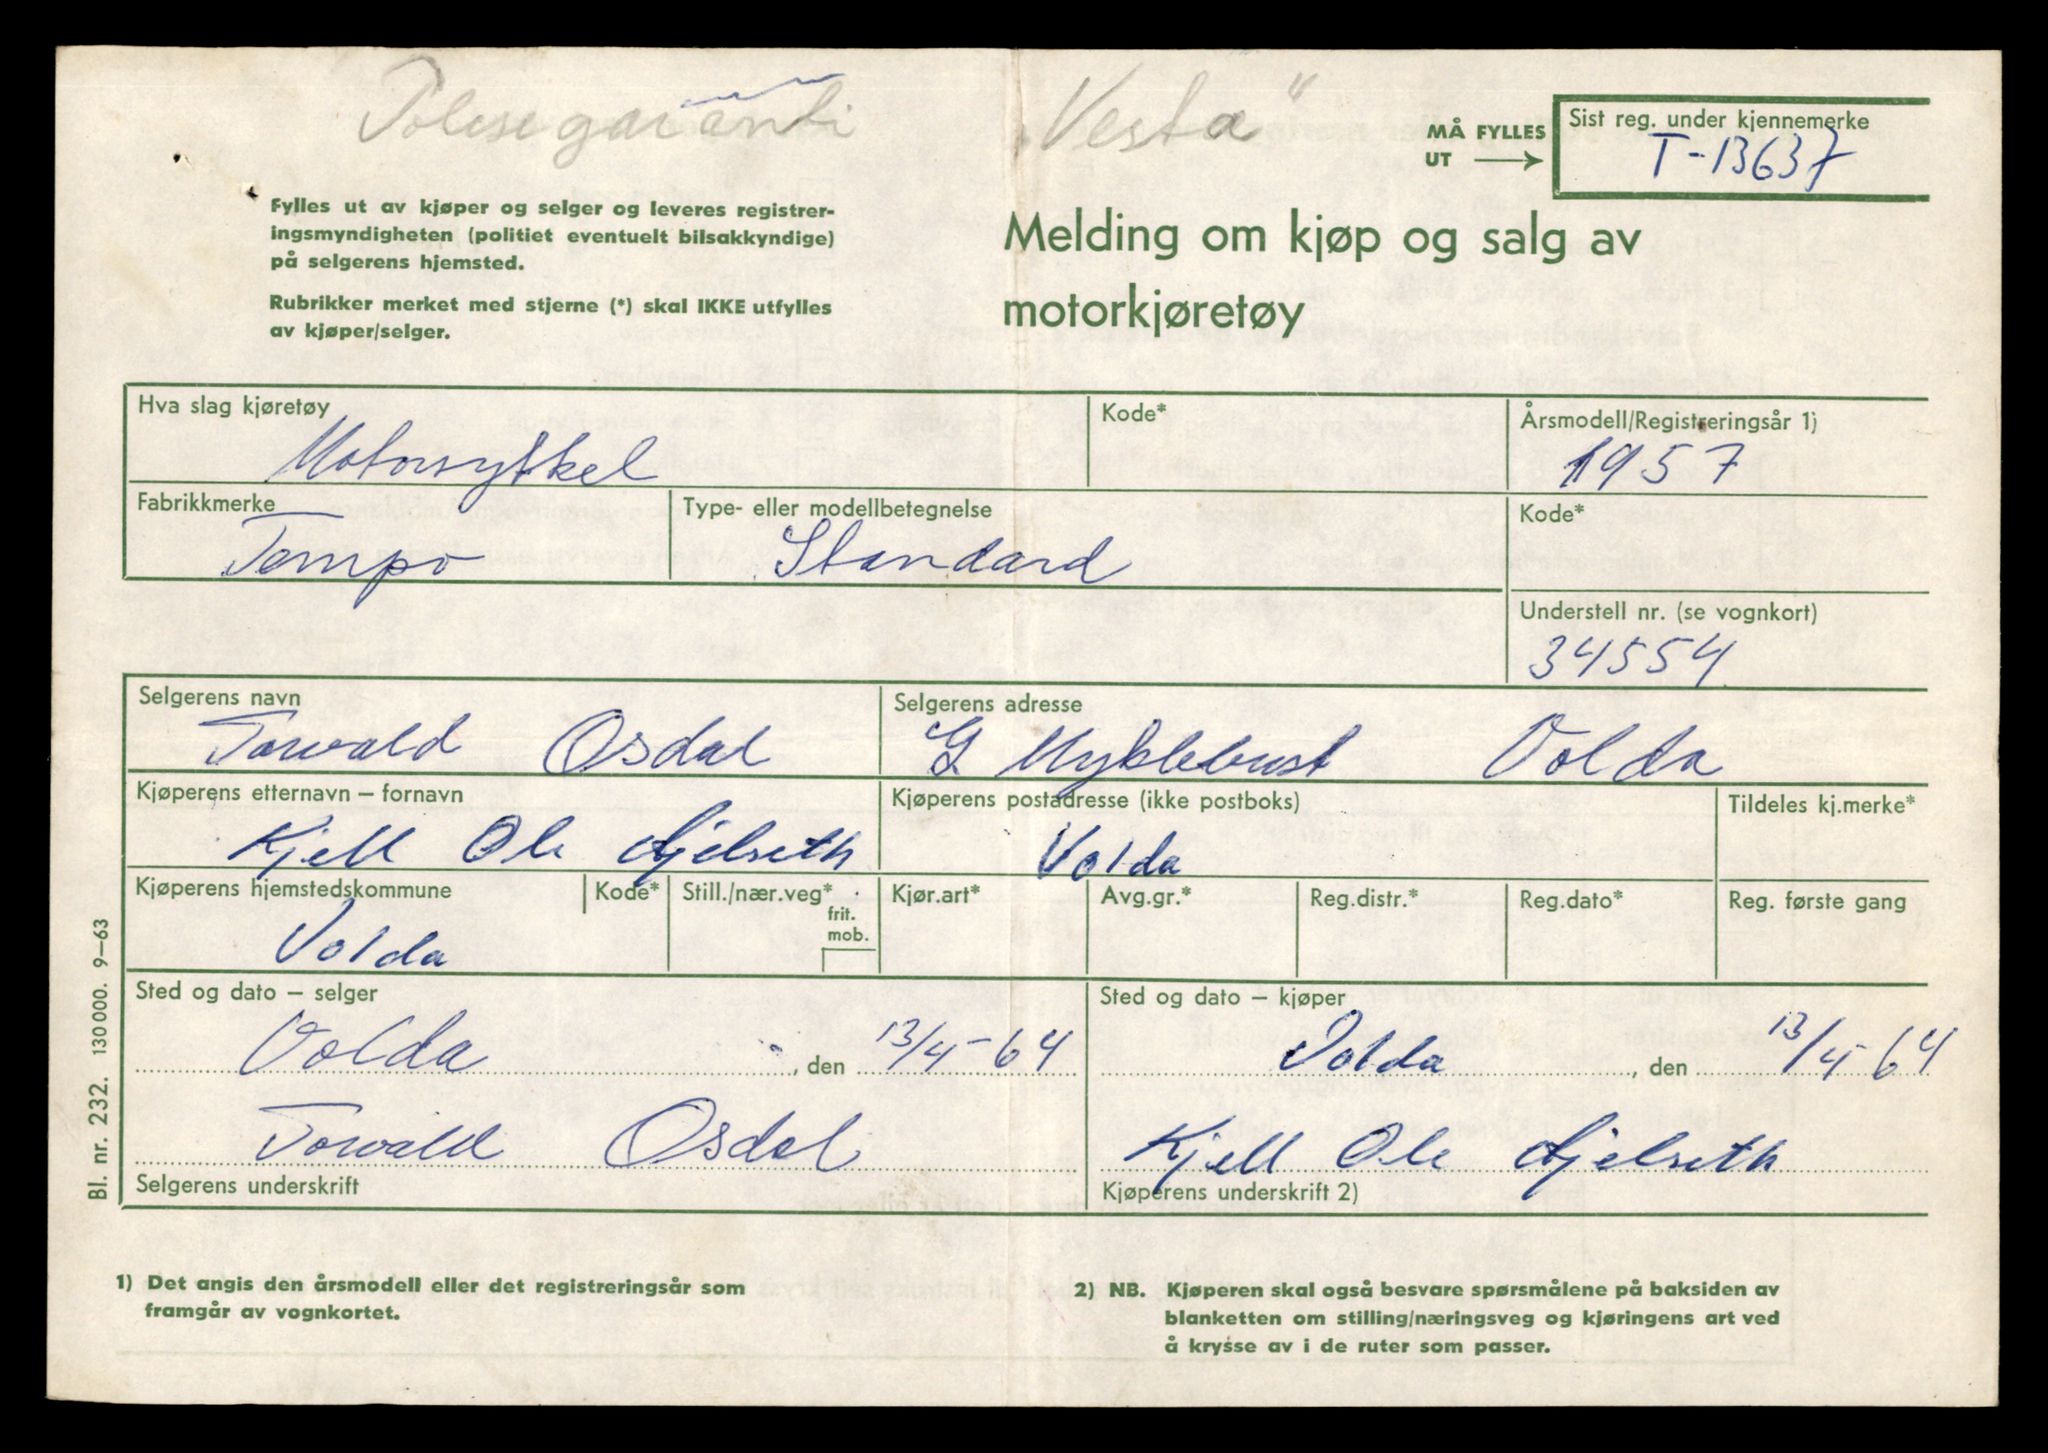 Polisegaranti „Vesta"
MÅ FYLLES UT
Sist reg. under kjennemerke
T-13637
Fylles ut av kjøper og selger og leveres registrer-
ingsmyndigheten (politiet eventuelt bilsakkyndige)
på selgerens hjemsted.
Rubrikker merket med stjerne (*) skal IKKE utfylles
av kjøper/selger.
Melding om kjøp og salg av
motorkjøretøy
Hva slag kjøretøy
Motorsykkel
Kode*
Årsmodell/Registreringsår 1)
1957
Fabrikkmerke
Tempo
Type- eller modellbetegnelse
Standard
Kode*
Understell nr. (se vognkort)
34554
Selgerens navn
Torvald Osdal
Selgerens adresse
G Myklebust Volda
Kjøperens etternavn – fornavn
Kjell Ole
Kjøperens postadresse (ikke postboks)
Volda
Tildeles kj.merke*
Kjøperens hjemstedskommune
Volda
Kode*
Still./nær.veg*
frit.
mob.
Kjør.art*
Avg.gr.*
Reg.distr.*
Reg.dato*
Reg. første gang
Sted og dato – selger
Volda, den 13/4-64
Sted og dato – kjøper
Volda, den 13/4-64
Torvald Osdal
Selgerens underskrift
Kjell Ole
Kjøperens underskrift 2)
Bl. nr. 232. 130 000. 9–63
1) Det angis den årsmodell eller det registreringsår som
framgår av vognkortet.
2) NB. Kjøperen skal også besvare spørsmålene på baksiden av
blanketten om stilling/næringsveg og kjøringens art ved
å krysse av i de ruter som passer.